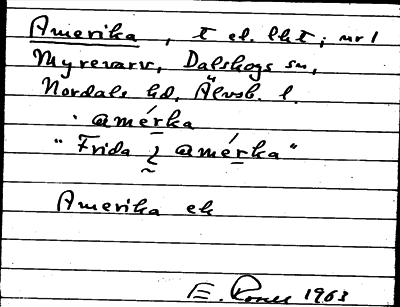 Amerika, t el. lht; nr 1
Myrevarv, Dalskogs sn,
Nordals hd, Älvsb. l.
amérka
"Frida i amérka"
Amerika ek
E. 1963